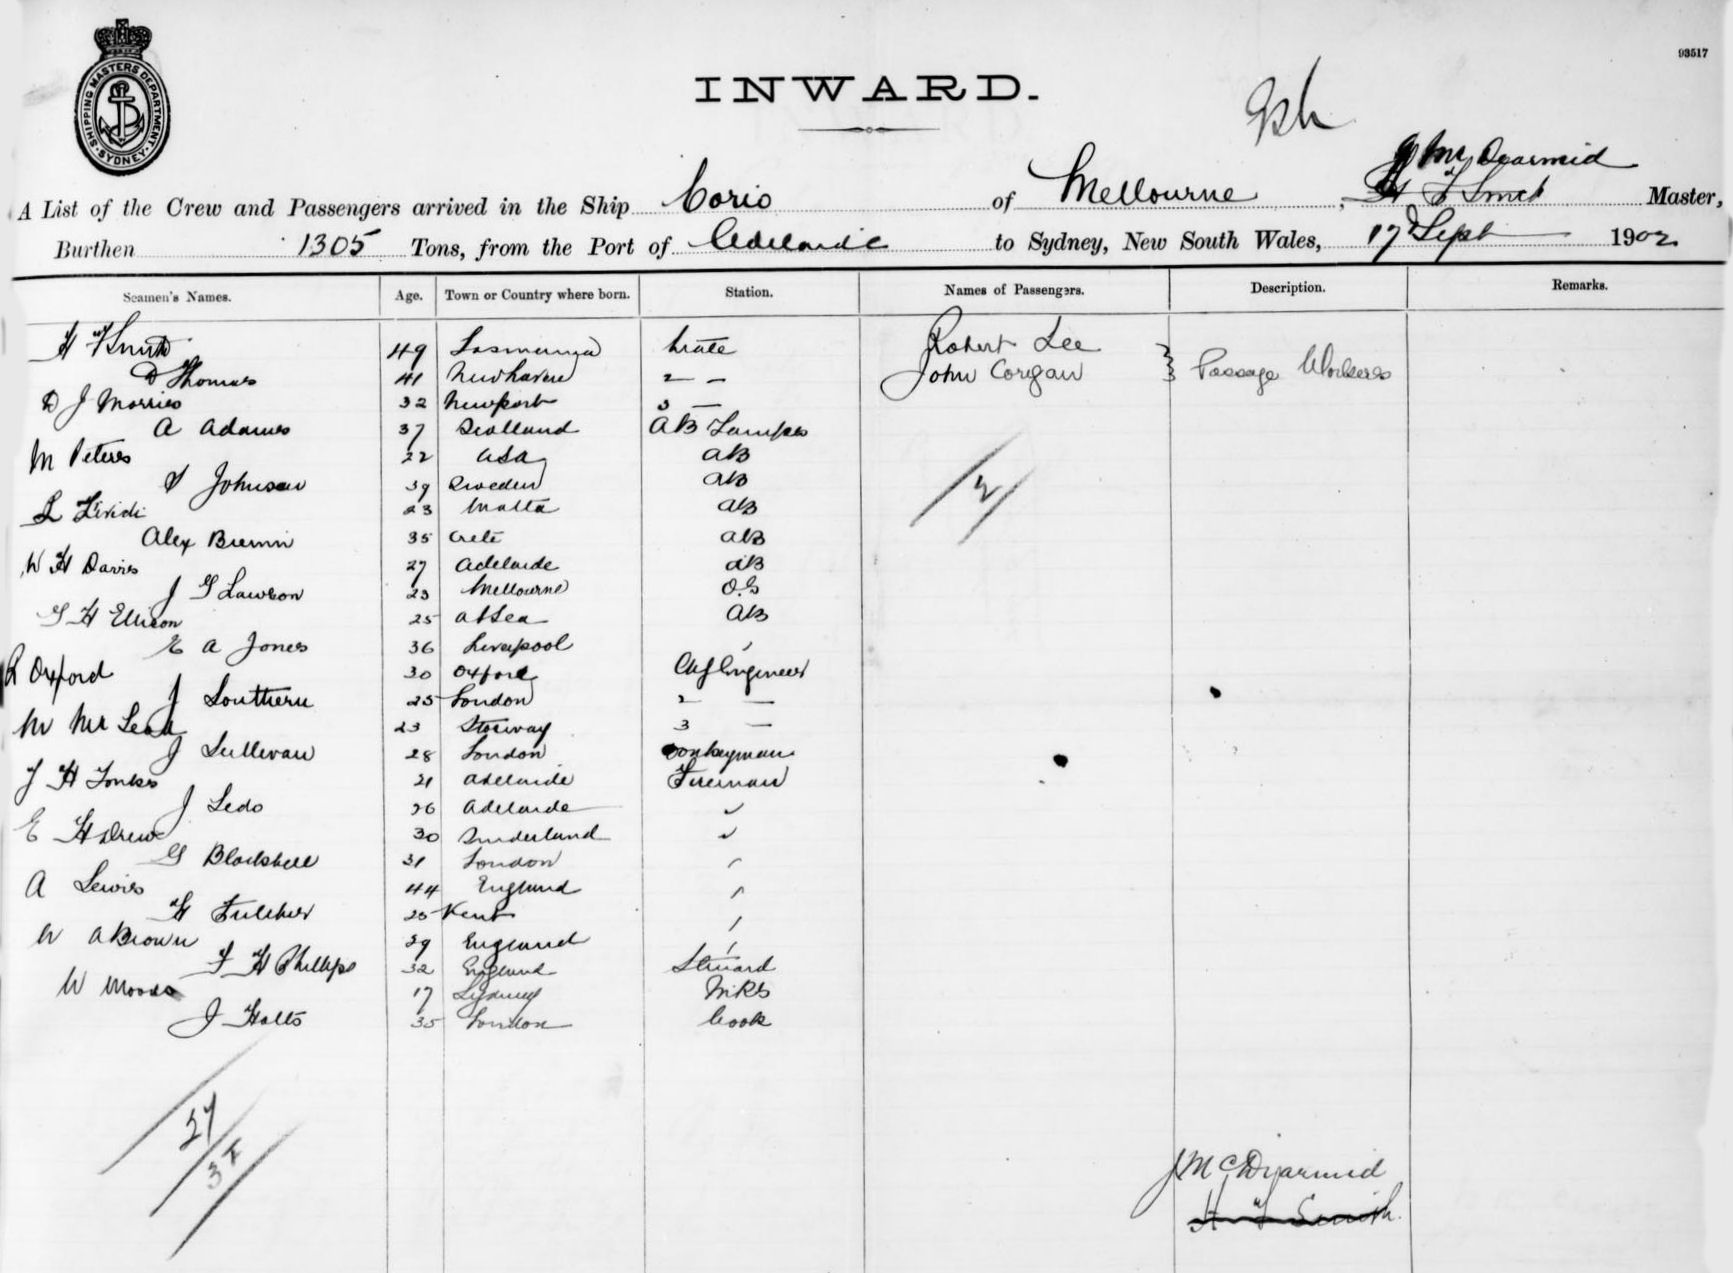 93517
SHIPPING MASTERS DEPARTMENT. SYDNEY.
INWARD.
J McDearmid
A List of the Crew and Passengers arrived in the Ship Corio of Melbourne, H F Smith Master,
Burthen 1305 Tons, from the Port of Adelaide to Sydney, New South Wales, 17 Sept 1902
Seamen's Names. Age. Town or Country where born. Station. Names of Passengers. Description. Remarks.
H F Smith 49 Tasmania Mate Robert Lee
D Thomas 41 Newhaven 2 — John Corigan } Passage Workers
D J Morries 32 Newport 3 —
A Adams 37 Scotland AB Lamps
M Peters 22 AB
Johnson 39 Sweden AB
L 23 Malta AB
Alex 35 Crete AB
W H Davies 27 Adelaide AB
J G Lawson 23 Melbourne O.S
G H Ellison 25 at Sea AB
E A Jones 36 Liverpool
R Oxford 30 Oxford Chf Engineer
J Southern 25 London 2 —
M Mc Leod 23 3 —
J Sullivan 28 London Donkeyman
J H Tonkes 21 Adelaide Fireman
J Ledo 26 Adelaide
E H Drew 30 Sunderland
G 31 London
A Lewis 44 England
H Fulcher 25 Kent
W A Brown 29 England
F H Phillips 32 England Steward
W Woods 17 Sydney
J Holts 35 London Cook
2
27
J McDyarmid
H F Smith.